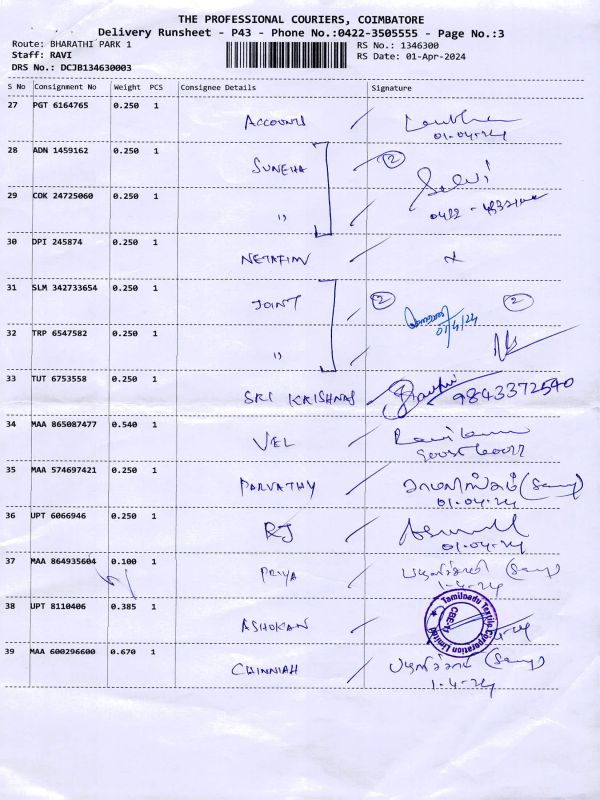 THE PROFESSIONAL COURIERS, COIMBATORE
Delivery Runsheet - P43 - Phone No.:0422-3505555 - Page No.:3
Route: BHARATHI PARK 1 RS No.: 1346300
Staff: RAVI RS Date: 01-Apr-2024
DRS No.: DCJB134630003
S No Consignment No Weight PCS Consignee Details Signature
27 PGT 6164765 0.250 1 ACCOUNTS
01-04-24
28 ADN 1459162 0.250 1 SUNEHA 2 Selvi
29 COK 24725060 0.250 1 ,,
30 DPI 245874 0.250 1 NETAFIM
31 SLM 342733654 0.250 1 JOINT 2 2
01/4/24
32 TRP 6547582 0.250 1 ,,
33 TUT 6753558 0.250 1 SRI KRISHNAS 9843372540
34 MAA 865087477 0.540 1 VEL Ravikumar
35 MAA 574697421 0.250 1 PARVATHY
01-04-24
36 UPT 6066946 0.250 1 RJ
01-04-24
37 MAA 864935604 0.100 1 PRIYA
1-4-24
38 UPT 8110406 0.385 1 ASHOKAN Tamilnadu Textile Corporation Limited CBE-11
39 MAA 600296600 0.670 1 CHINNIAH
1-4-24